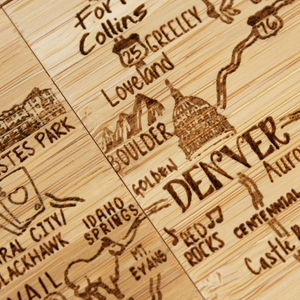 Fort
Collins
GREELEY
25
76
Loveland
ESTES PARK
BOULDER
GOLDEN
DENVER
Aurora
RAL CITY/
BLACKHAWK
IDAHO
SPRINGS
RED
ROCKS
CENTENNIAL
Castle
VAIL
MT.
EVANS